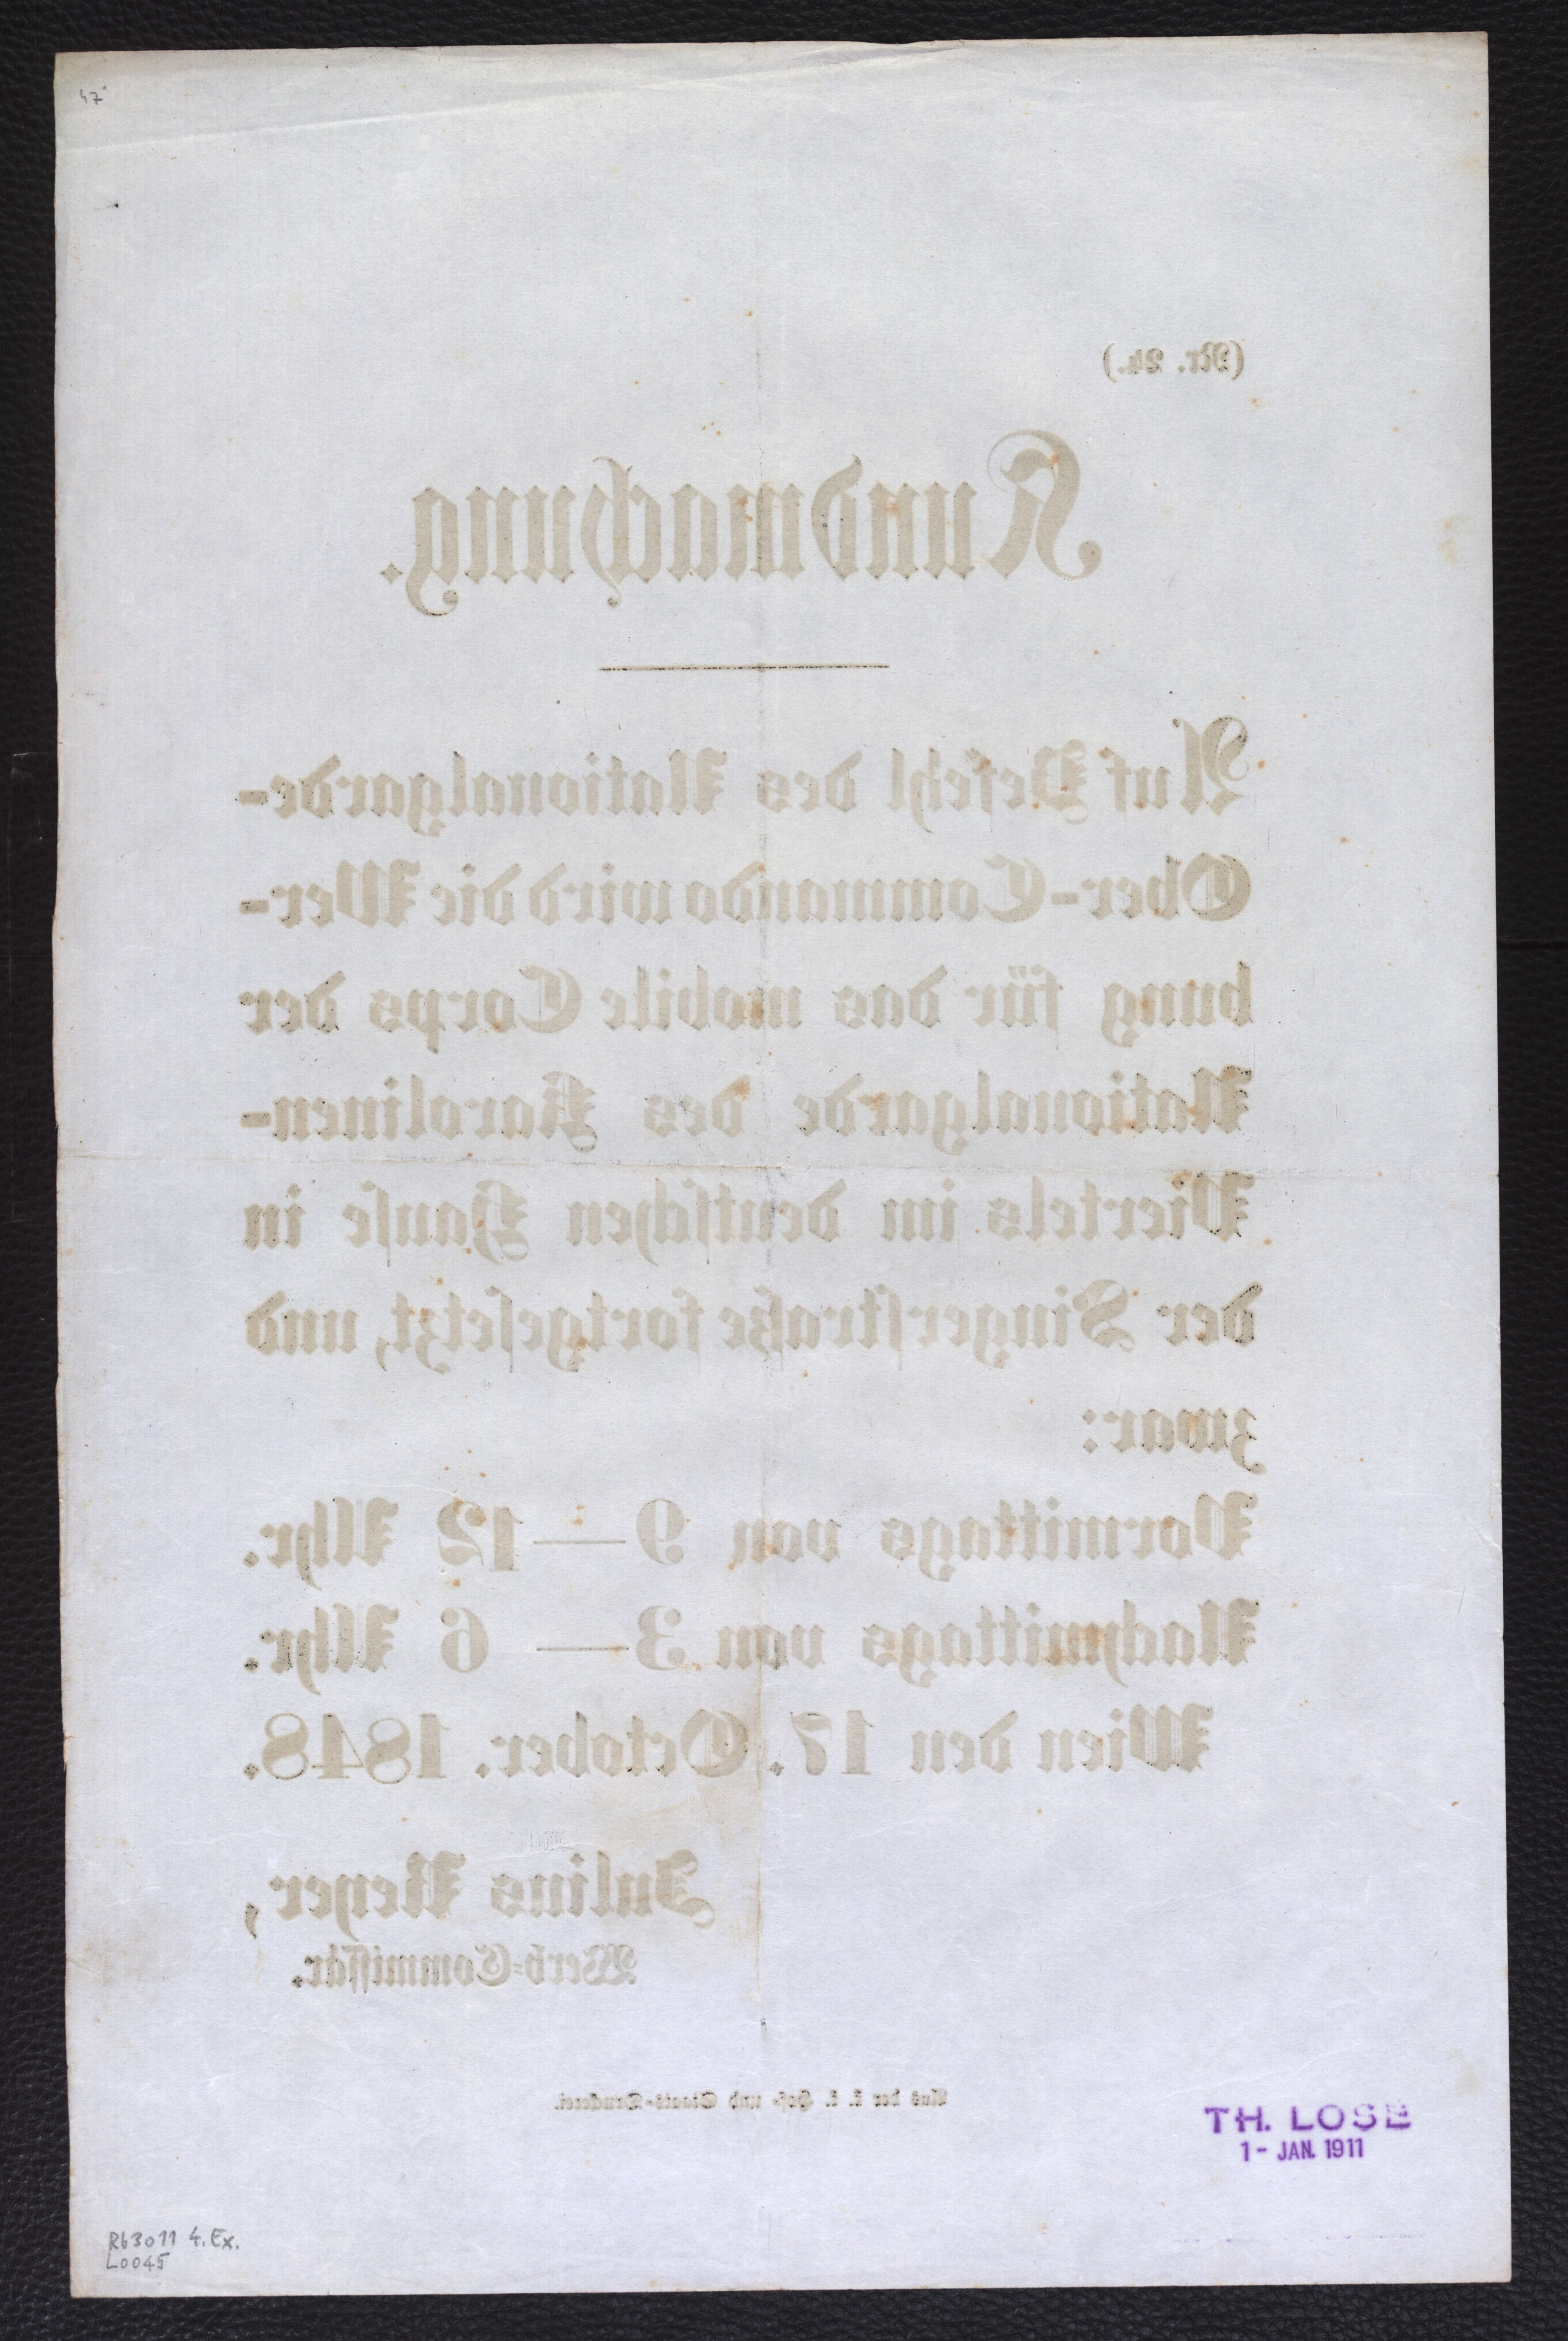 47
(Nr. 24.)
Kundmachung.
Auf Befehl des Nationalgarde-
Ober-Commando wird die Wer-
bung für das mobile Corps der
Nationalgarde des Karolinen-
Viertels im deutschen Hause in
der Singerstraße fortgesetzt, und
zwar:
Vormittags von 9—12 Uhr.
Nachmittags von 3— 6 Uhr.
Wien den 17. October. 1848.
Julius Reyer,
Werb-Commissär.
Aus der k. k. Hof- und Staats-Druckerei.
TH. LOSE
1- JAN. 1911
R63011 4. Ex.
L0045